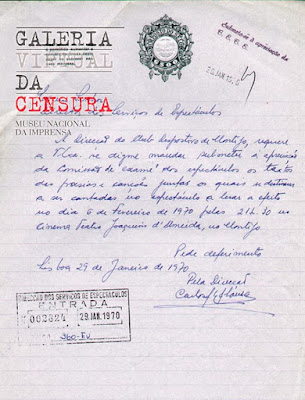 GALERIA
VIRTUAL
DA
CENSURA
MUSEU NACIONAL
DA IMPRENSA
Submeta-se à apreciação da
C. E. C. E.
dos Serviços de Espectáculos
A Direcção do Club Desportivo de Montijo, requere
a V. Exa. se digne mandar submeter à apreciação
da Comissão de exame dos espectáculos os textos
das poesias e canções juntas os quais se destinam
a ser cantadas no espectáculo a levar a efeito
no dia 6 de Fevereiro de 1970 pelas 21h.30 no
Cinema Teatro Joaquim d'Almeida, no Montijo.
Pede deferimento
Lisboa 29 de Janeiro de 1970
Pela Direcção
DIRECÇÃO DOS SERVIÇOS DE ESPECTÁCULOS
ENTRADA
002324 29.JAN.1970